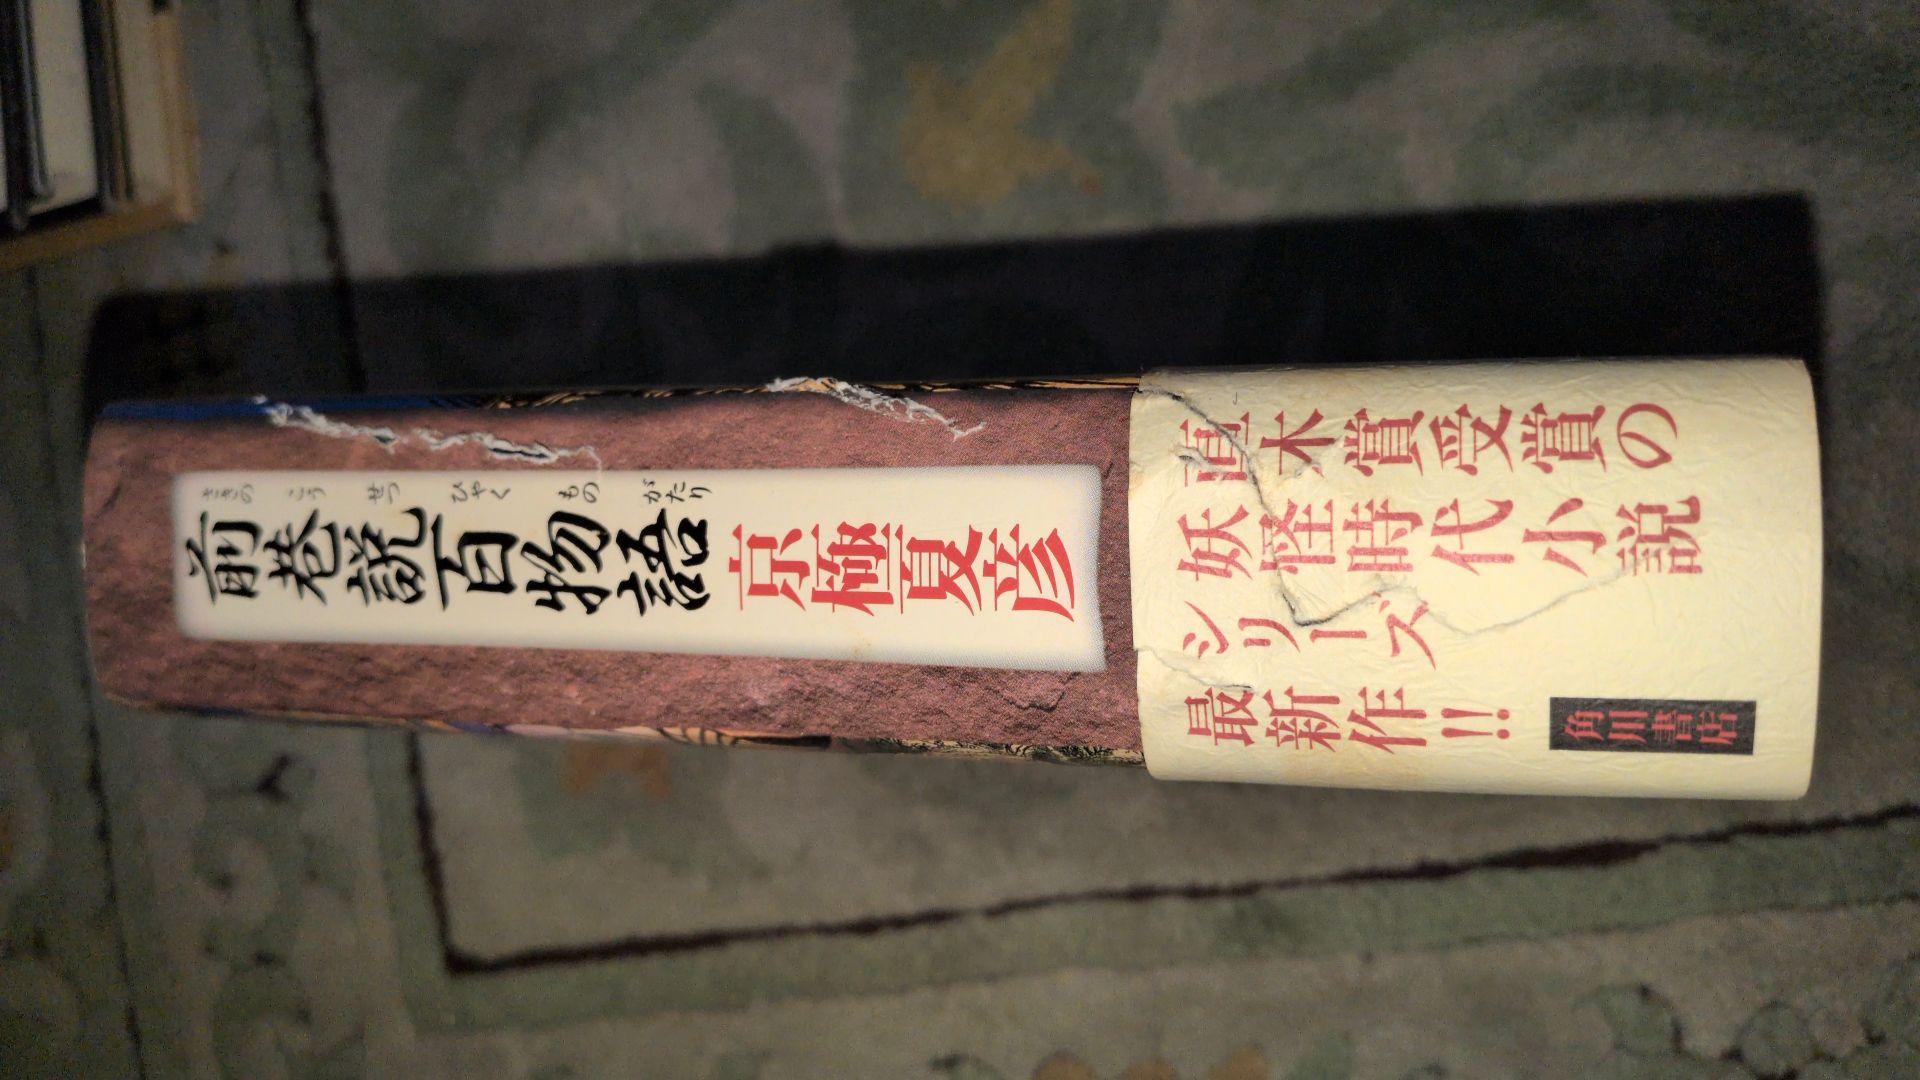 さきのこうせつひゃくものがたり
前巷説百物語
京極夏彦
直木賞受賞の
妖怪時代小説
シリーズ
最新作!!
角川書店